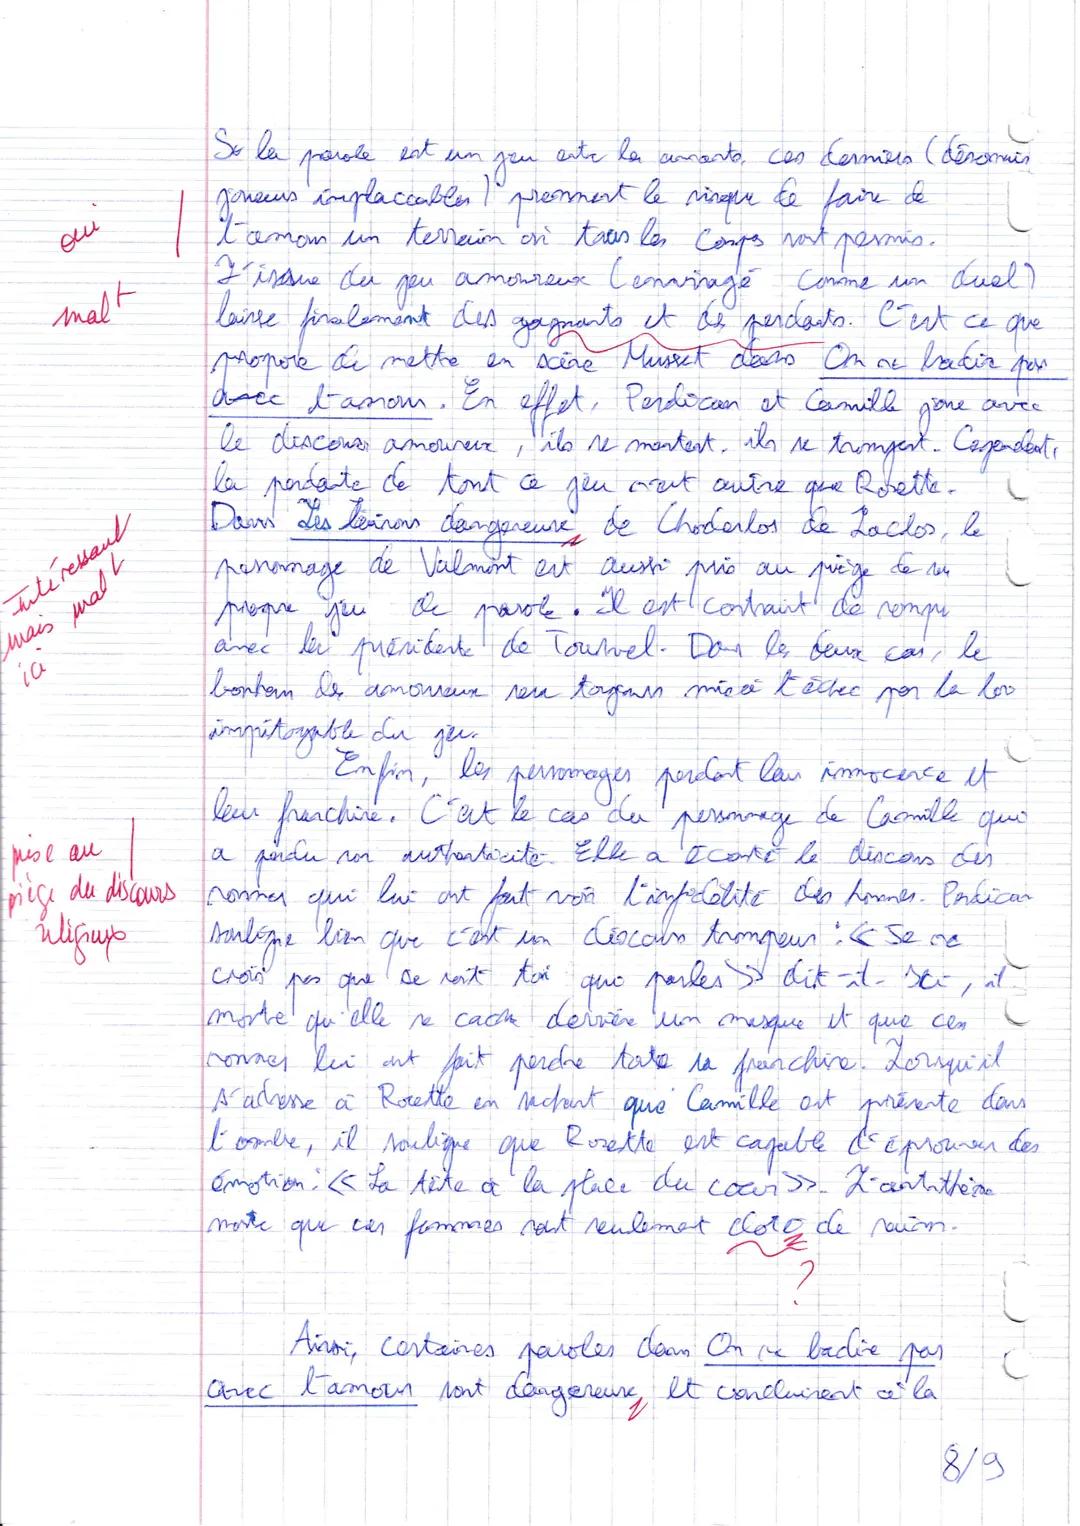 Si la parole est un jeu entre les amants, ces derniers (désormais
joueurs implaccables) prennent le risque de faire de
l'amour un terrain où tous les coups sont permis.
oui
L'issue du jeu amoureux (envisagé comme un duel)
malt
laisse finalement des gagnants et des perdants. C'est ce que
propose de mettre en scène Musset dans On ne badine pas
avec l'amour. En effet, Perdican et Camille joue avec
le discours amoureux, ils se mentent, ils se trompent. Cependant,
la perdante de tout ce jeu n'est autre que Rosette.
Dans Les liaisons dangereuse de Choderlos de Laclos, le
personnage de Valmont est aussi pris au piège de son
Intéressant
mais malt
ici
propre jeu de parole. Il est contraint de rompre
avec la présidente de Tourvel. Dans les deux cas, le
bonheur des amoureux sera toujours mis à l'échec par la loi
impitoyable du jeu.
Enfin, les personnages perdent leur innocence et
leur franchise. C'est le cas du personnage de Camille qui
a perdu son authenticité. Elle a écouté le discours des
prise au
piège du discours
religieux
nonnes qui lui ont fait voir l'infidélité des hommes. Perdican
souligne bien que c'est un discours trompeur : « Je ne
crois pas que se soit toi qui parles » dit-il. Ici, il
montre qu'elle se cache derrière un masque et que ces
nonnes lui ont fait perdre toute sa franchise. Lorsqu'il
s'adresse à Rosette en sachant que Camille est présente dans
l'ombre, il souligne que Rosette est capable d'éprouver des
émotion : « La tête à la place du cœur ». L'antithèse
montre que ces femmes sont seulement doté de raison.
?
Ainsi, certaines paroles dans On ne badine pas
avec l'amour sont dangereuse, et conduisent à la
8/9